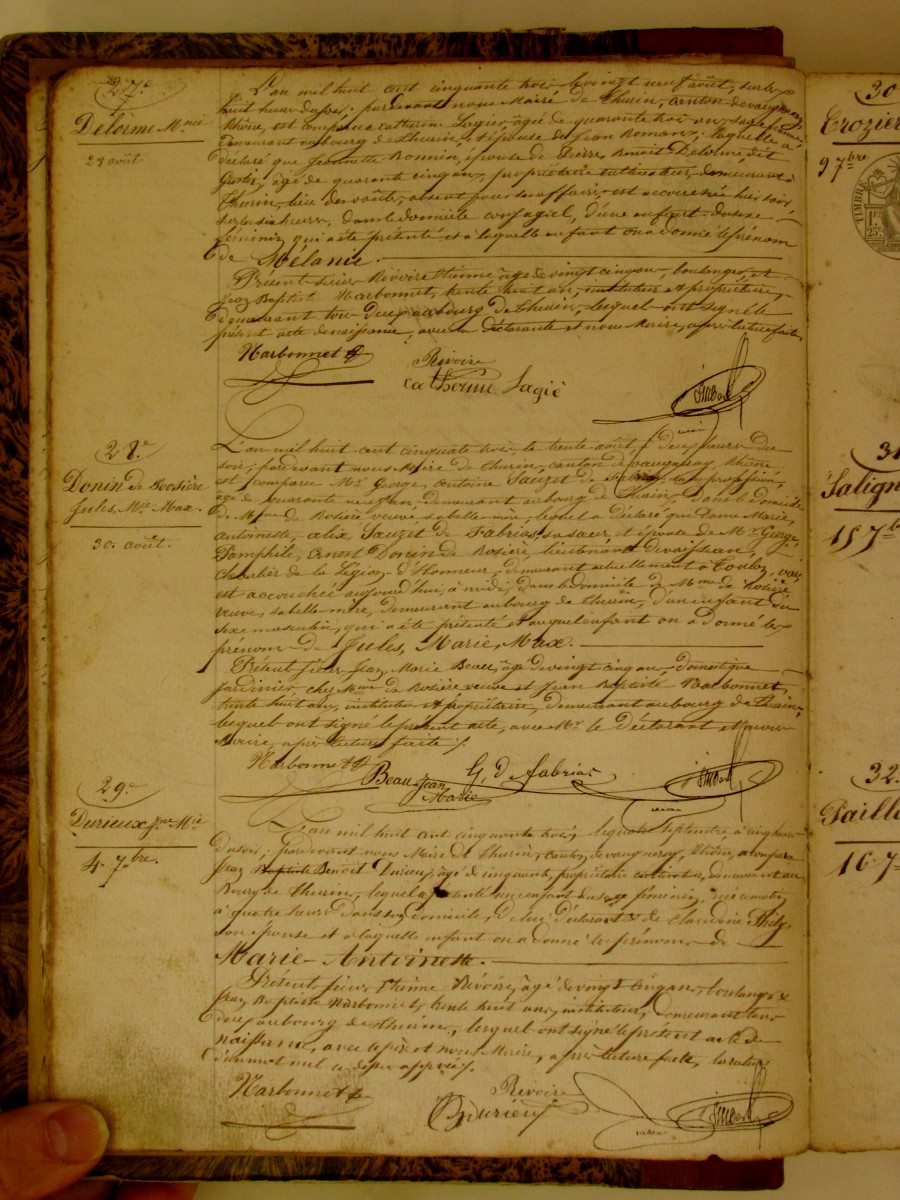 27e
Delorme Mnie
28 août
L'an mil huit cent cinquante trois le vingt neuf août, sur les
huit heures du soir, pardevant nous Maire de Thurin, canton de vaugneray
Rhône, est comparue catherine Lagier, âgée de quarante trois ans, sage femme,
demeurant au bourg de Thurin, et épouse de Jean Romans; laquelle a
déclaré que Jeannette Bonnin, épouse de Pierre Benoit Delorme dit
âgé de quarante cinq ans, propriétaire cultivateur, demeurant à
Thurin, lieu des voûtes, absent pour ses affaires, est accouchée hier soir,
sur les six heures, dans le domicile conjugal, d'une enfant du sexe
féminin, qui a été présenté et à laquelle enfant on a donné le prénom
de Mélanie.
Présent sieurs Rivoire Etienne âgé de vingt cinq ans, boulanger, et
Jean Baptiste Narbonnet, trente huit ans, instituteur et propriétaire,
demeurant tous deux au bourg de Thurin, lesquels ont signé le
présent acte de naissance, avec la déclarante et nous Maire, après lecture faite.
Narbonnet
Rivoire
catherine Lagié
28e
Donin de Rosière
Jules, Mie Max.
30. août.
L'an mil huit cent cinquante trois, le trente août, à deux heures du
soir, pardevant nous Maire de Thurin, canton de vaugneray, Rhône
est comparu Mr George, antoine Sauzet de Fabrias, sans profession,
âgé de quarante neuf ans, demeurant au bourg de Thurin, dans le domicile
de Mme de Rosière veuve, sa belle mère, lequel a déclaré que Dame Marie,
antoinette, alix Sauzet de Fabrias, sa sœur, et épouse de Mr George,
Pamphile, Ernest Donin de Rosière, lieutenant de vaisseau,
chevalier de la Légion d'Honneur, demeurant actuellement à Toulon, var,
est accouchée aujourd'hui, à midi, dans le domicile de Mme de Rosière,
veuve, sa belle mère, demeurant au bourg de Thurin, d'un enfant du
sexe masculin, qui a été présenté et auquel enfant on a donné les
prénoms de Jules, Marie, Max.
Présent sieurs Jean Marie Beau, âgé de vingt cinq ans, domestique
Jardinier, chez Mme de Rosière veuve et Jean Baptiste Narbonnet,
trente huit ans, instituteur et propriétaire, demeurant au bourg de Thurin,
lesquels ont signé le présent acte, avec Mr le Déclarant et nous
Maire, après lecture faite.
Narbonnet
Beau Jean
Marie
G. de fabrias
29e
Durieux Mie
4. 7bre.
L'an mil huit cent cinquante trois, le quatre septembre à cinq heures
du soir, pardevant nous Maire de Thurin, canton de vaugneray, Rhône, a comparu
Jean Baptiste Benoit Durieux, âgé de cinquante, propriétaire cultivateur, demeurant au
Bourg de Thurin, lequel a présenté une enfant du sexe féminin, née
à quatre heures dans son domicile, de lui Déclarant & de Claudine
son épouse et à laquelle enfant on a donné les prénoms de
Marie-Antoinette.
Présent sieurs Etienne Rivoire, âgé de vingt cinq ans, boulanger &
Jean Baptiste Narbonnet, trente huit ans, instituteur, demeurant tous
deux au bourg de Thurin, lesquels ont signé le présent acte de
naissance, avec le père et nous Maire, après lecture faite,
d'un mot nul ci dessus approuvé.
Narbonnet
Rivoire
Durieux
30
Crozier
9 7bre
TIMBRE
31
Salign
15 7b
32.
Paill
16 7